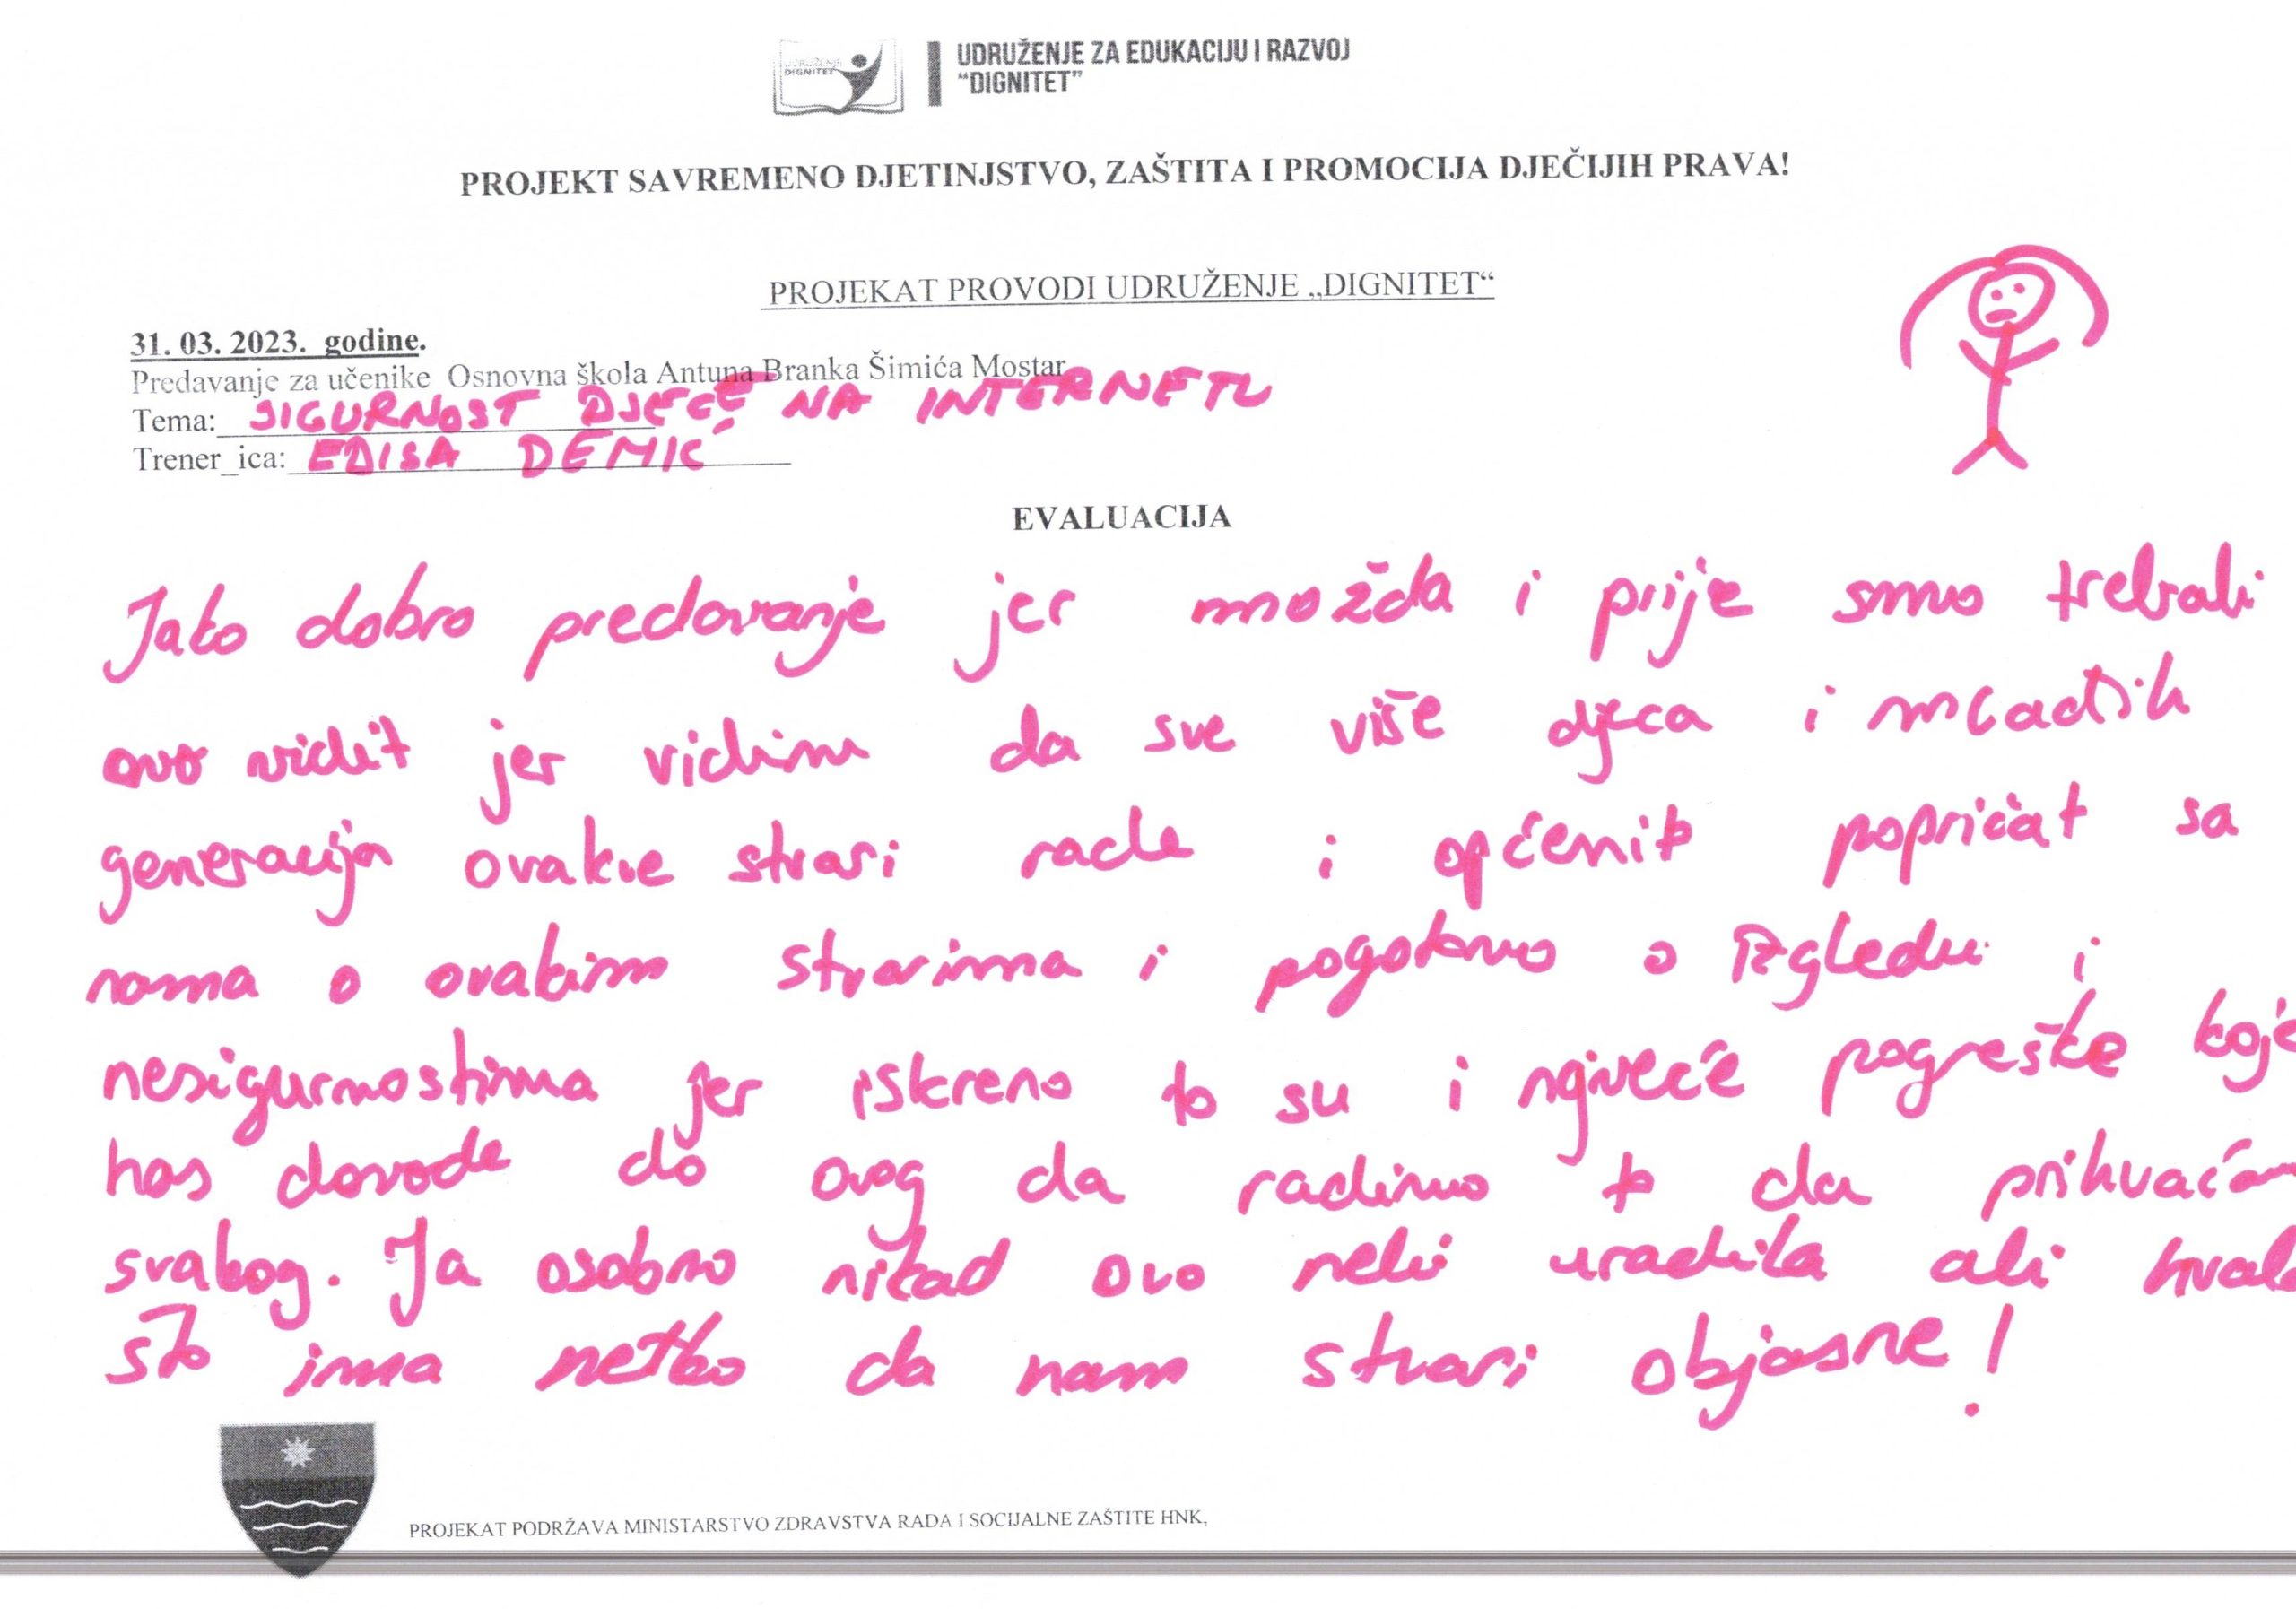 UDRUŽENJE
DIGNITET
UDRUŽENJE ZA EDUKACIJU I RAZVOJ
“DIGNITET”
PROJEKT SAVREMENO DJETINJSTVO, ZAŠTITA I PROMOCIJA DJEČIJIH PRAVA!
PROJEKAT PROVODI UDRUŽENJE „DIGNITET“
31. 03. 2023. godine.
Predavanje za učenike Osnovna škola Antuna Branka Šimića Mostar
Tema: SIGURNOST DJECE NA INTERNETU
Trener_ica: EDISA DEMIĆ
EVALUACIJA
Jako dobro predavanje jer možda i prije smo trebali
ovo vidit jer vidimo da sve više djeca i mladih
generacija ovakve stvari rade i općenito popričat sa
nama o ovakim stvarima i pogotovo o izgledu i
nesigurnostima jer iskreno to su i najveće pogreške koje
nas dovode do ovog da radimo to da prihvaćam
svakog. Ja osobno nikad ovo nebi uradila ali hvala
što ima netko da nam stvari objasne!
PROJEKAT PODRŽAVA MINISTARSTVO ZDRAVSTVA RADA I SOCIJALNE ZAŠTITE HNK.